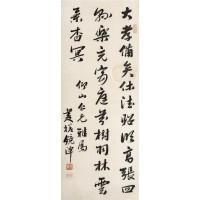 大孝備矣休德昭清高張四
縣樂充宮庭芬樹羽林雲
景杳冥
仰山仁兄雅屬